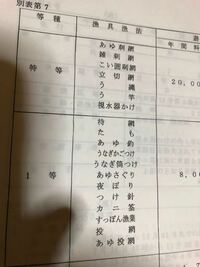 別表第7
等種
漁具漁法
遊
年間料
特等
あゆ刺網
雑刺網
こい囲刺網
立切網
う縄
う竿
視水器かけ
20,00
1等
待網
たも
あゆ釣
うなぎかごつけ
うなぎ筒つけ
あゆさぐり
夜ぼり
つけ針
カニ筌
すっぽん漁業
投網
あゆ投網
8,0